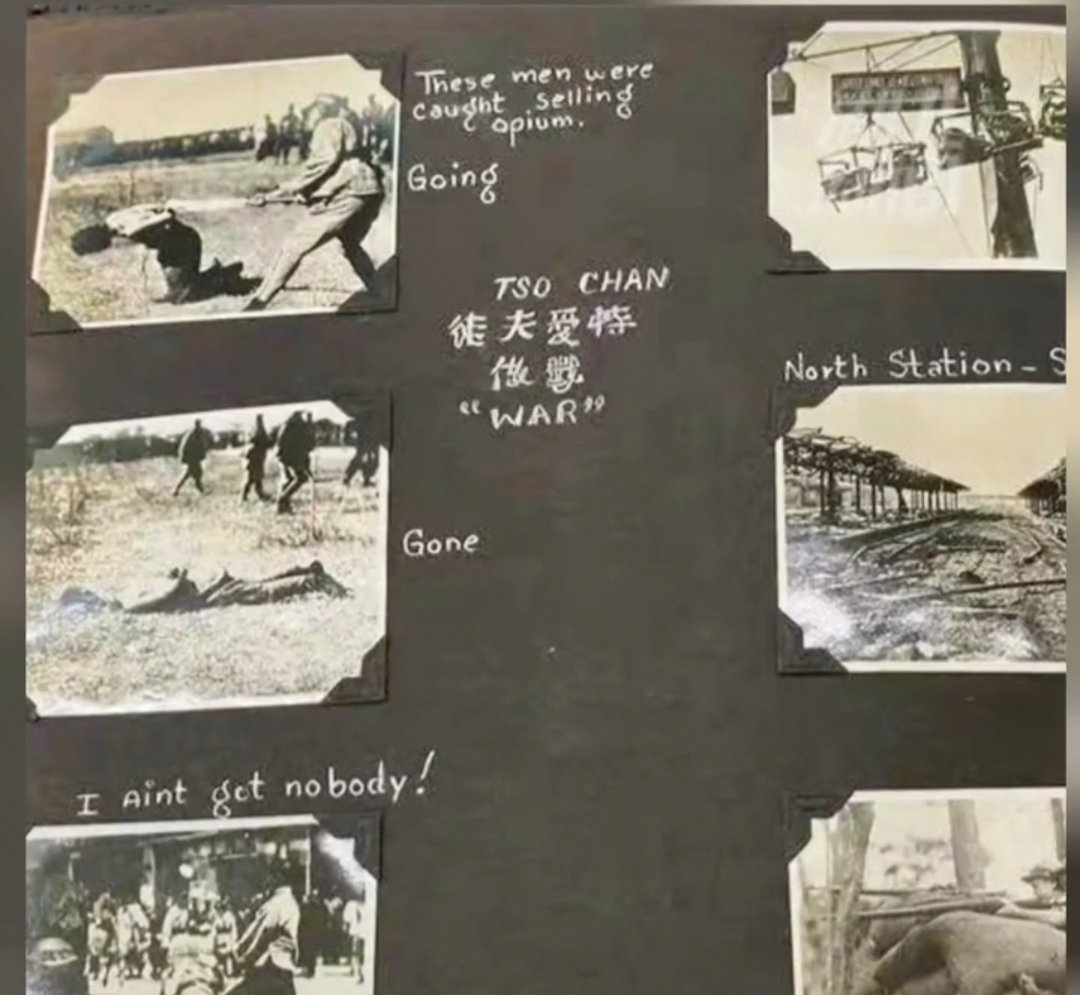 These men were
caught selling
opium.
Going
TSO CHAN
徒夫愛特
做戰
"WAR"
North Station - S
Gone
I aint got nobody!